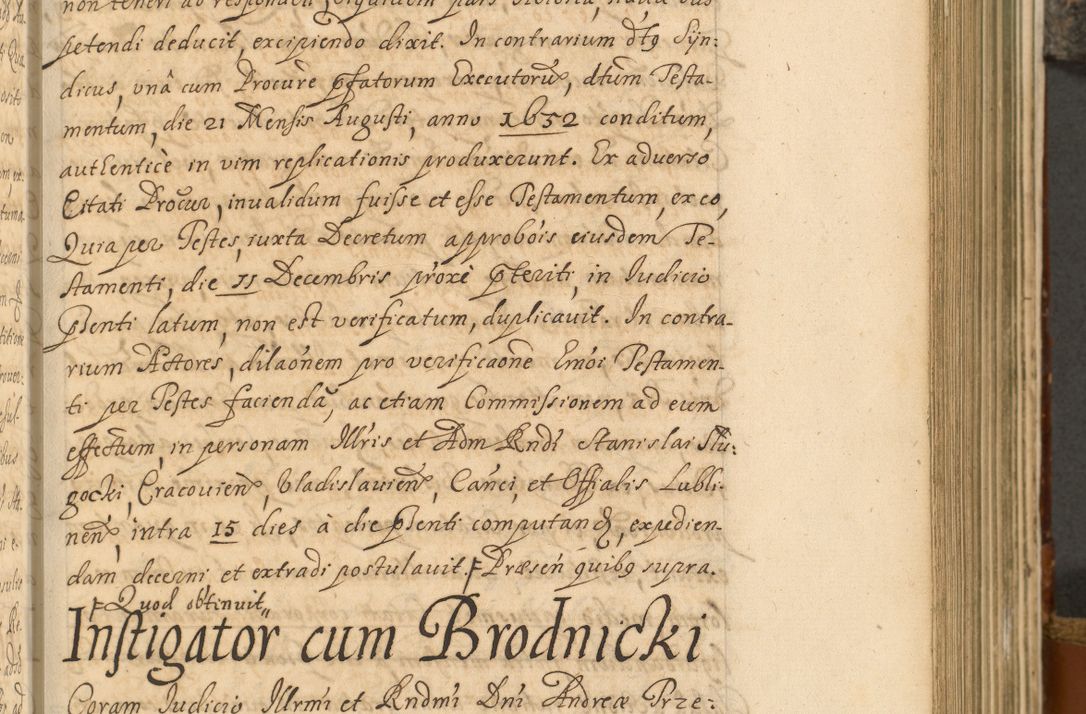 non teneri ad respondend,
petendi deducit, excipiendo dixit. In contrarium dt9 Syn:
dicus, unâ cum Procure pfatorum Executorũ, dtum Testa-
mentum, die 21 Mensis Augusti, anno 1652 conditum,
authenticè in vim replicationis produxerunt. Ex adverso
Citati Procur, invalidum fuisse et esse Testamentum, ex eo,
Quia per Testes, iuxta Decretum approbois eiusdem Te-
stamenti, die 11 Decembris proxè pteriti, in Iudicio
psenti latum, non est verificatum, duplicavit. In contra-
rium Actores, dilaonem pro verificaone Emoi Testamen-
ti per Testes faciendã, ac etiam Commissionem ad eum
effectum, in personam Illris et Adm Rndi Stanislai Slu:
gocki, Cracovien, Vladislavien, Canci, et Offialis Lubli-
nen, intra 15 dies à die psenti computand, expedien-
dam, decerni, et extradi postulavit. Præsen quib9 supra.
Quod obtinuit
Instigator cum Brodnicki
Coram Iudicio Illrmi et Rndmi Dni Andreæ Prze: